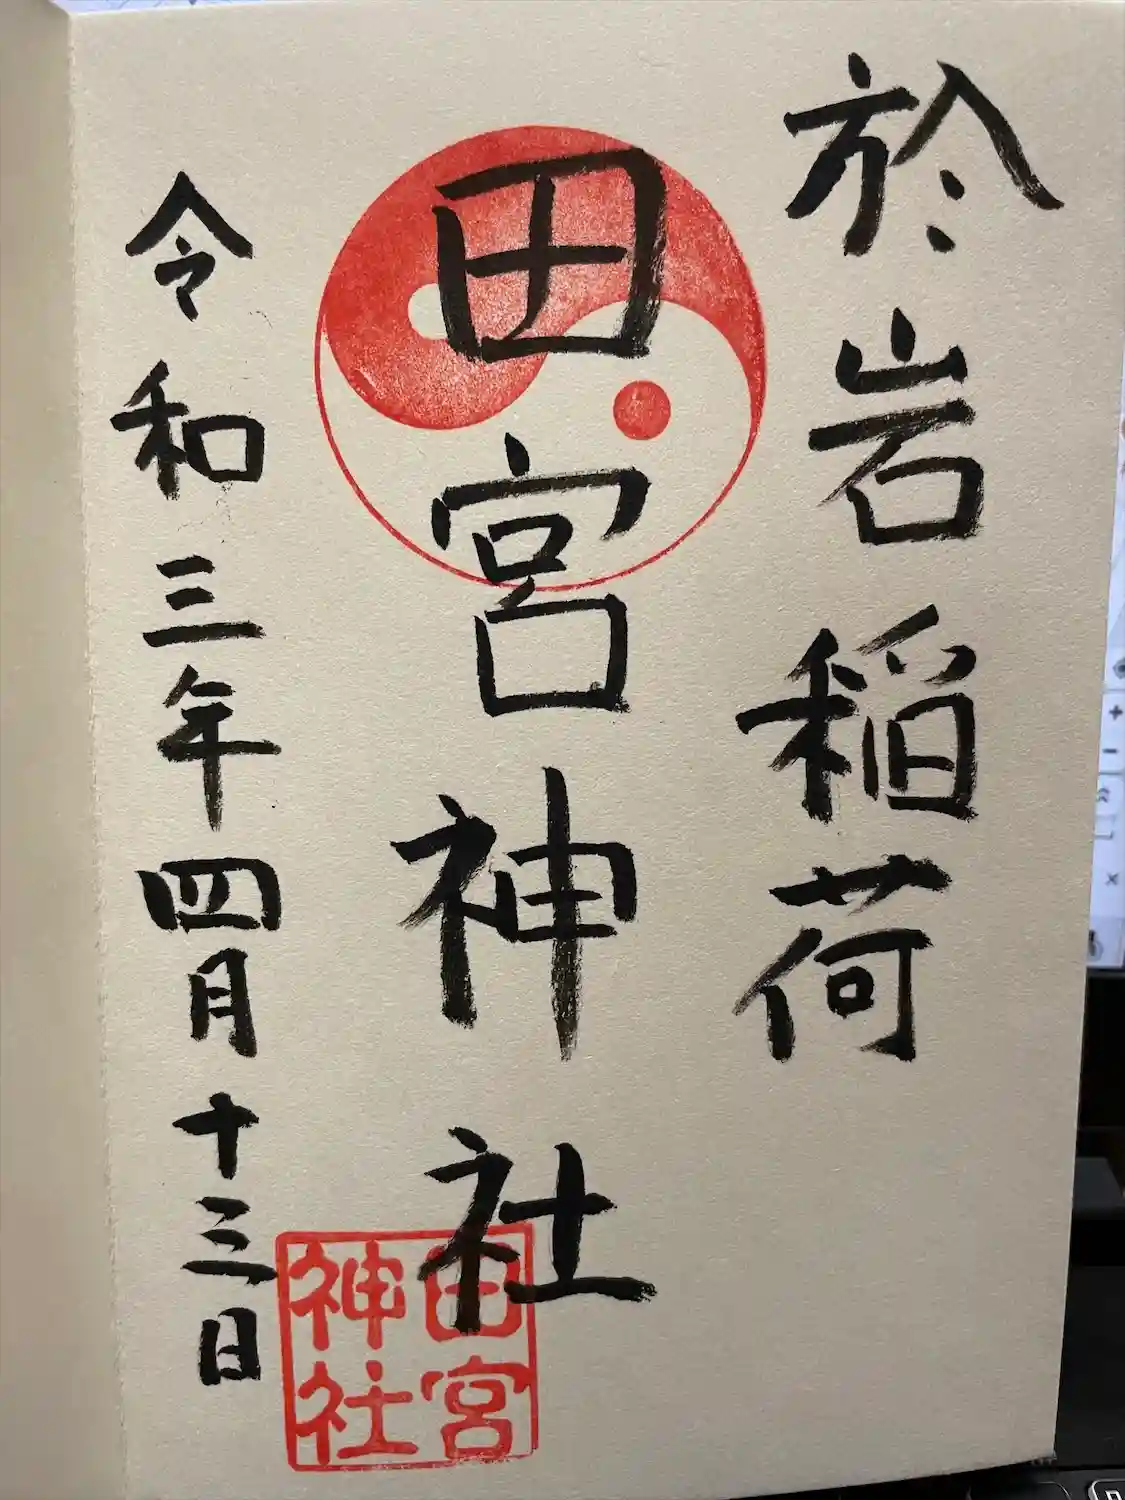 於岩稲荷
田宮神社
令和三年四月十三日
田宮
神社